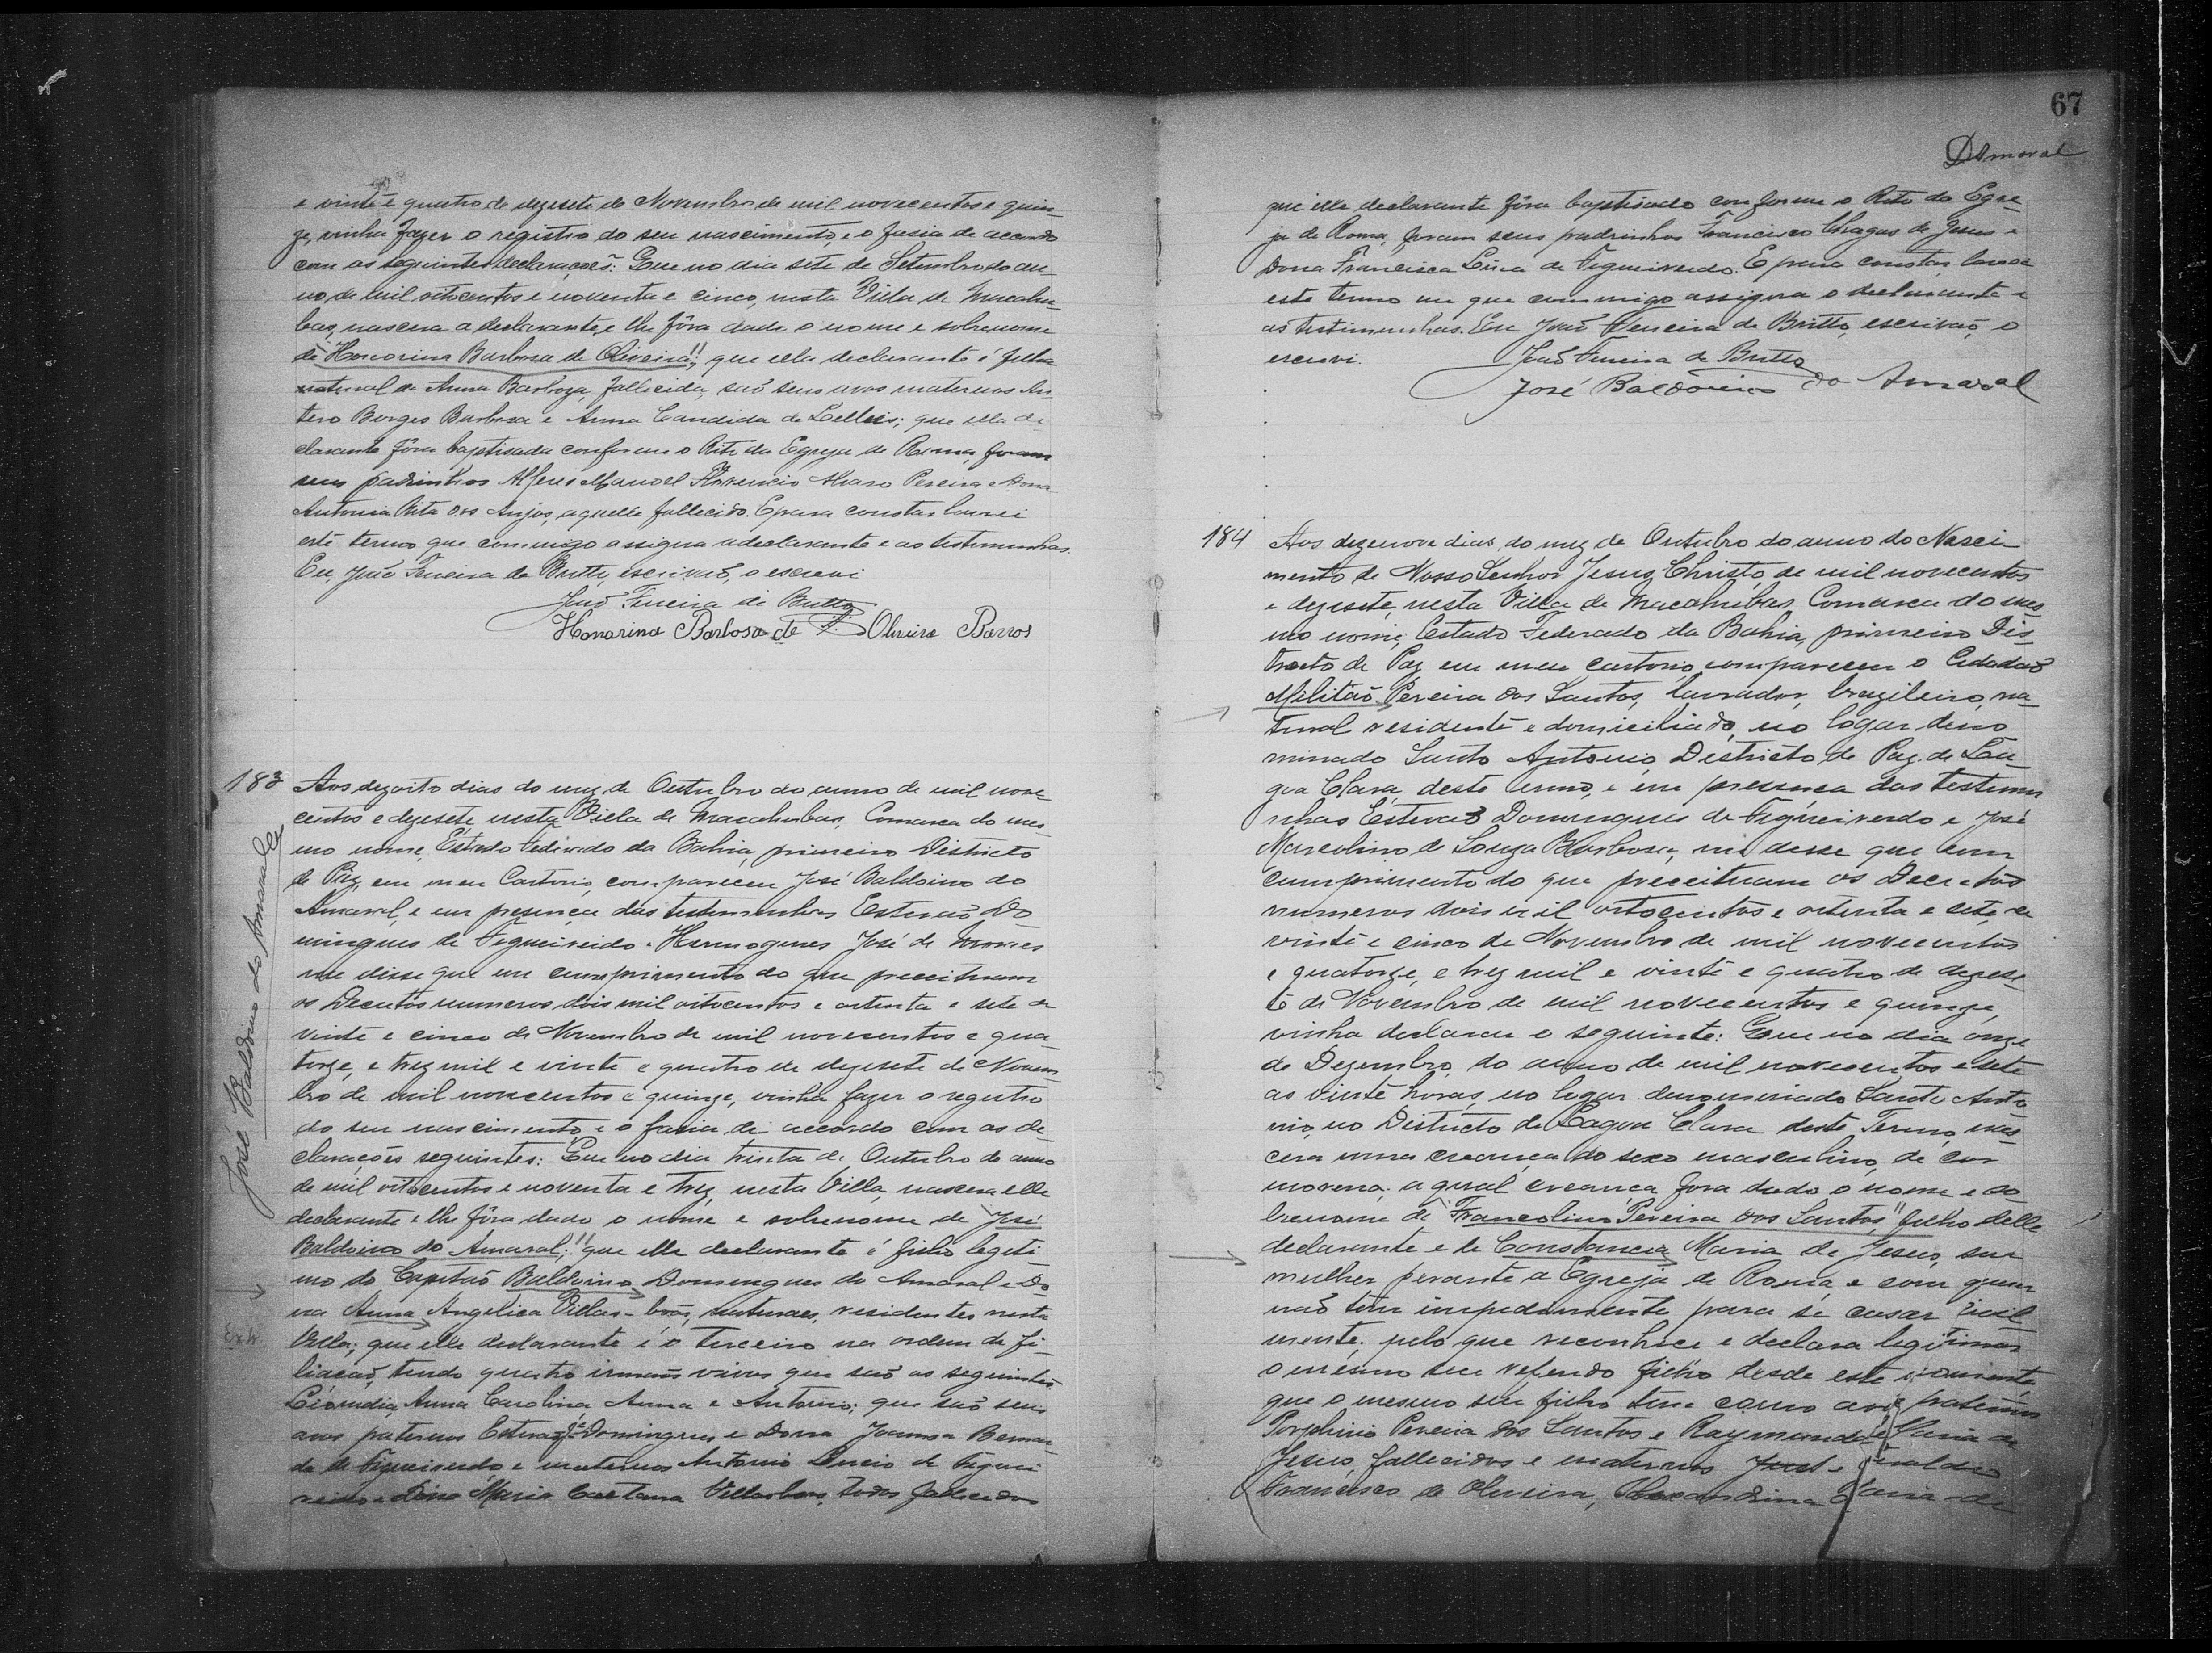 e vinte e quatro de dezesete de Novembro de mil novecentos e quin-
ze, vinha fazer o registro do seu nascimento, e o fasia de accordo
com as seguintes declarações: Que no dia sete de Setembro do an-
no de mil oitocentos e noventa e cinco, nesta Villa de Macahu-
bas, nascera a declarante, e lhe fôra dado o nome e sobrenome
de "Honorina Barbosa de Oliveira"; que ella declarante é filha
natural de Anna Barboza, fallecida, saõ seus avos maternos An-
tero Borges Barbosa e Anna Candida de Lellis; que ella de-
clarante fôra baptisada conforme o Rito da Egreja de Roma, foram
seus padrinhos Alferes Manoel Florencio Alvaro Pereira e Dona
Antonia Rita dos Anjos, aquelle fallecido. E para constar lavrei
este termo que commigo assigna a declarante e as testimunhas.
Eu, João Ferreira de Britto, escrivaõ, o escrevi
João Ferreira de Britto
Honorina Barbosa de Oliveira Barros
183 Aos dezoito dias do mez de Outubro do anno de mil nove-
centos e dezesete, nesta Villa de Macahubas, Comarca do mes-
mo nome, Estado Federado da Bahia, primeiro Districto
de Paz, em meu Cartorio, compareceu José Baldoino do
Amaral, e em presença das testemunhas Estevaõ Do-
mingues de Figueiredo e Hermogenes José de Moraes
me disse que em cumprimento do que preceituam
os Decretos numeros dois mil oitocentos e oitenta e sete de
vinte e cinco de Novembro de mil novecentos e qua-
torze, e trez mil e vinte e quatro de dezesete de Novem-
bro de mil novecentos e quinze, vinha fazer o registro
do seu nascimento, e o fasia de accordo com as de-
clarações seguintes: Que no dia trinta de Outubro do anno
de mil oitocentos e noventa e trez, nesta Villa, nascera elle
declarante e lhe fôra dado o nome e sobrenome de "José
Baldoino do Amaral;" que elle declarante é filho legiti-
mo do Capitaõ Baldoino Domingues do Amaral e Do-
na Anna Angelica Villas-boas, naturaes, residentes nesta
Villa; que elle declarante é o terceiro na ordem de fi-
liação, tendo quatro irmaõs vivos que saõ os seguintes
Leomdia, Anna Carolina Anna e Antonio; que saõ seus
avos paternos Estevaõ Domingues e Dona Joanna Bernar-
da de Figueiredo e maternos Antonio Lucio de Figuei-
redo e Dona Maria Caetana Villasboas, todos fallecidos
José Baldoino do Amaral
67
D Amaral
que elle declarante fôra baptisado conforme o Rito da Egre-
ja de Roma, foram seus padrinhos Francisco Chagas de Jesus e
Dona Francisca Lina de Figueiredo. E para constar lavrei
este termo em que commigo assigna o declarante e
as testimunhas. Eu João Ferreira de Britto, escrivaõ, o
escrevi.
João Ferreira de Britto
José Baldoino do Amaral
184 Aos dezenove dias do mez de Outubro do anno do Nasci-
mento de Nosso Senhor Jesus Christo de mil novecentos
e dezesete, nesta Villa de Macahubas, Comarca do mes-
mo nome, Estado Federado da Bahia, primeiro Dis-
tricto de Paz, em meu cartorio, compareceu o Cidadaõ
Militaõ Pereira dos Santos, lavrador, brazileiro, na-
tural residente e domiciliado, no logar deno
minado Santo Antonio, Districto de Paz de Lau-
goa Clara, deste termo, e em presença das testemu-
nhas Estevaõ Domingues de Figueiredo e José
Marcolino de Souza Barbosa, me disse que em
cumprimento do que preceituam os Decretos
numeros dois mil oitocentos e oitenta e sete, de
vinte e cinco de Novembro de mil novecentos
e quatorze, e trez mil e vinte e quatro de dezese-
te de Novembro de mil novecentos e quinze,
vinha declarar o seguinte: Que no dia onze
de Dezembro, do anno de mil novecentos e sete
as vinte horas, no logar denominado Santo Anto-
nio, no Districto de Lagoa Clara deste Termo, nas-
cera uma creança do sexo masculino, de cor
morena. a qual creança fora dado o nome e so-
brenome de "Francolino Pereira dos Santos," filho delle
declarante e de Constancia Maria de Jesus, sua
mulher perante a Egreja de Roma, e com quem
naõ tem impedimento para se casar civil
mente, pelo que reconhece e declara legitimar
o mesmo seu referido filho desde este
que o mesmo seu filho tem como avos paternos
Porphirio Pereira dos Santos e Raymunda Maria de
Jesus, fallecidos e maternos
Francisco de Oliveira, Alexandrina Maria de